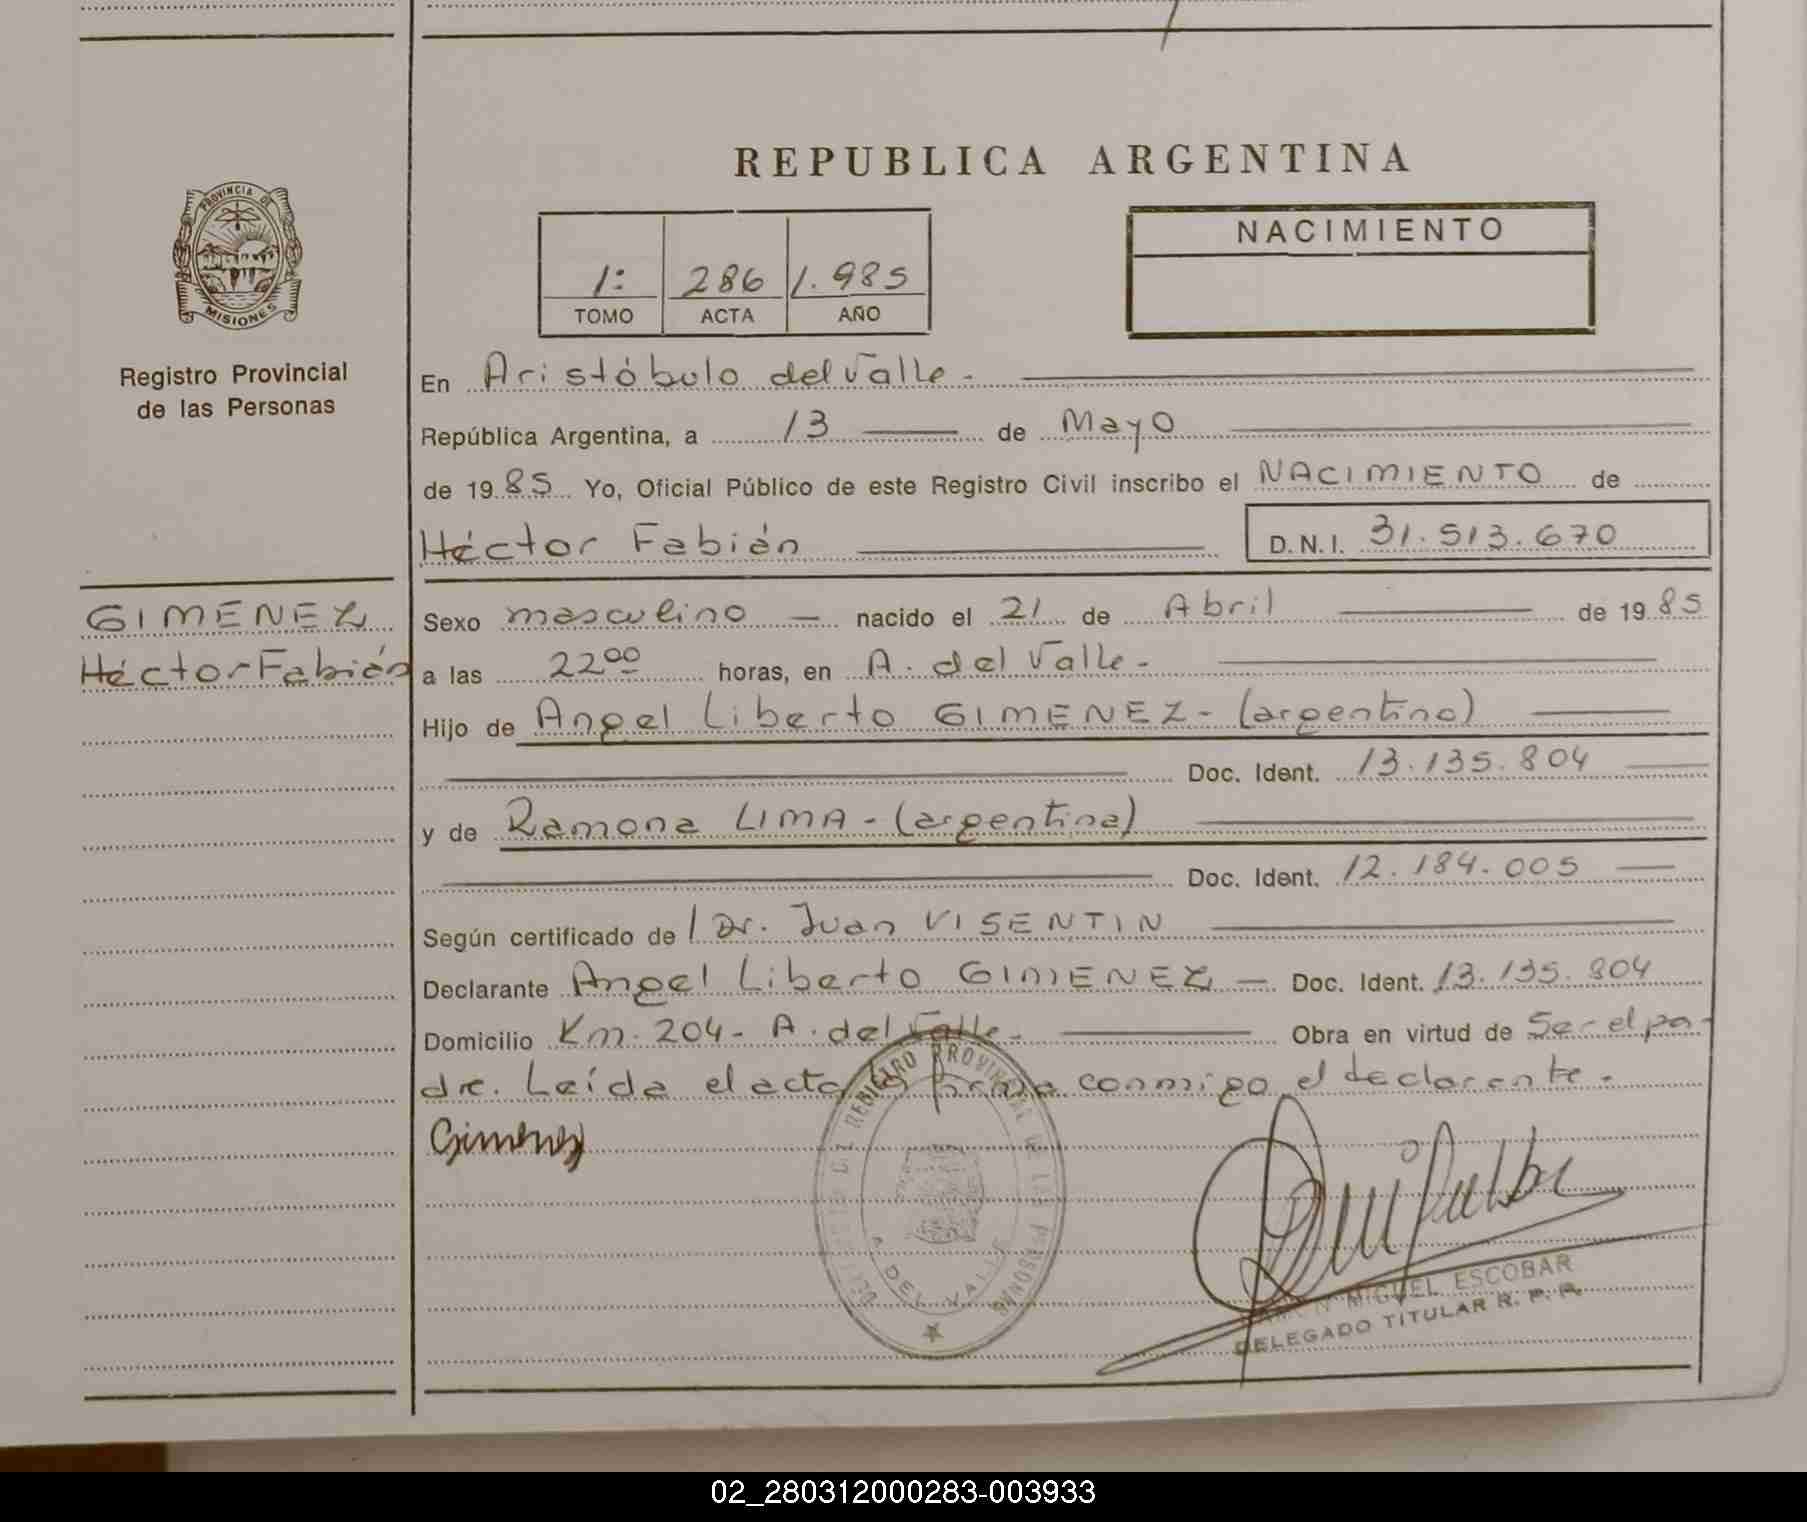 REPUBLICA ARGENTINA
PROVINCIA DE
MISIONES
Registro Provincial
de las Personas
1:
286
1.985
TOMO
ACTA
AÑO
NACIMIENTO
En Aristóbulo del Valle.-
República Argentina, a 13 de Mayo
de 1985 Yo, Oficial Público de este Registro Civil inscribo el NACIMIENTO de
Héctor Fabián
D.N.I. 31.513.670
GIMENEZ
Héctor Fabián
Sexo masculino nacido el 21 de Abril de 1985
a las 22⁰⁰ horas, en A. del Valle.-
Hijo de Angel Liberto GIMENEZ - (argentino)
Doc. Ident. 13.135.804
y de Ramona LIMA - (argentina)
Doc. Ident. 12.184.005
Según certificado de / Dr. Juan VISENTIN
Declarante Angel Liberto GIMENEZ - Doc. Ident. 13.135.804
Domicilio Km. 204- A. del Valle.- Obra en virtud de Ser el pa-
dre. Leída el acta la firma conmigo el declarante.-
Gimenez
REGISTRO PROVINCIAL DE LAS PERSONAS
A. DEL VALLE
MIGUEL ESCOBAR
DELEGADO TITULAR R. P. P.
02_280312000283-003933